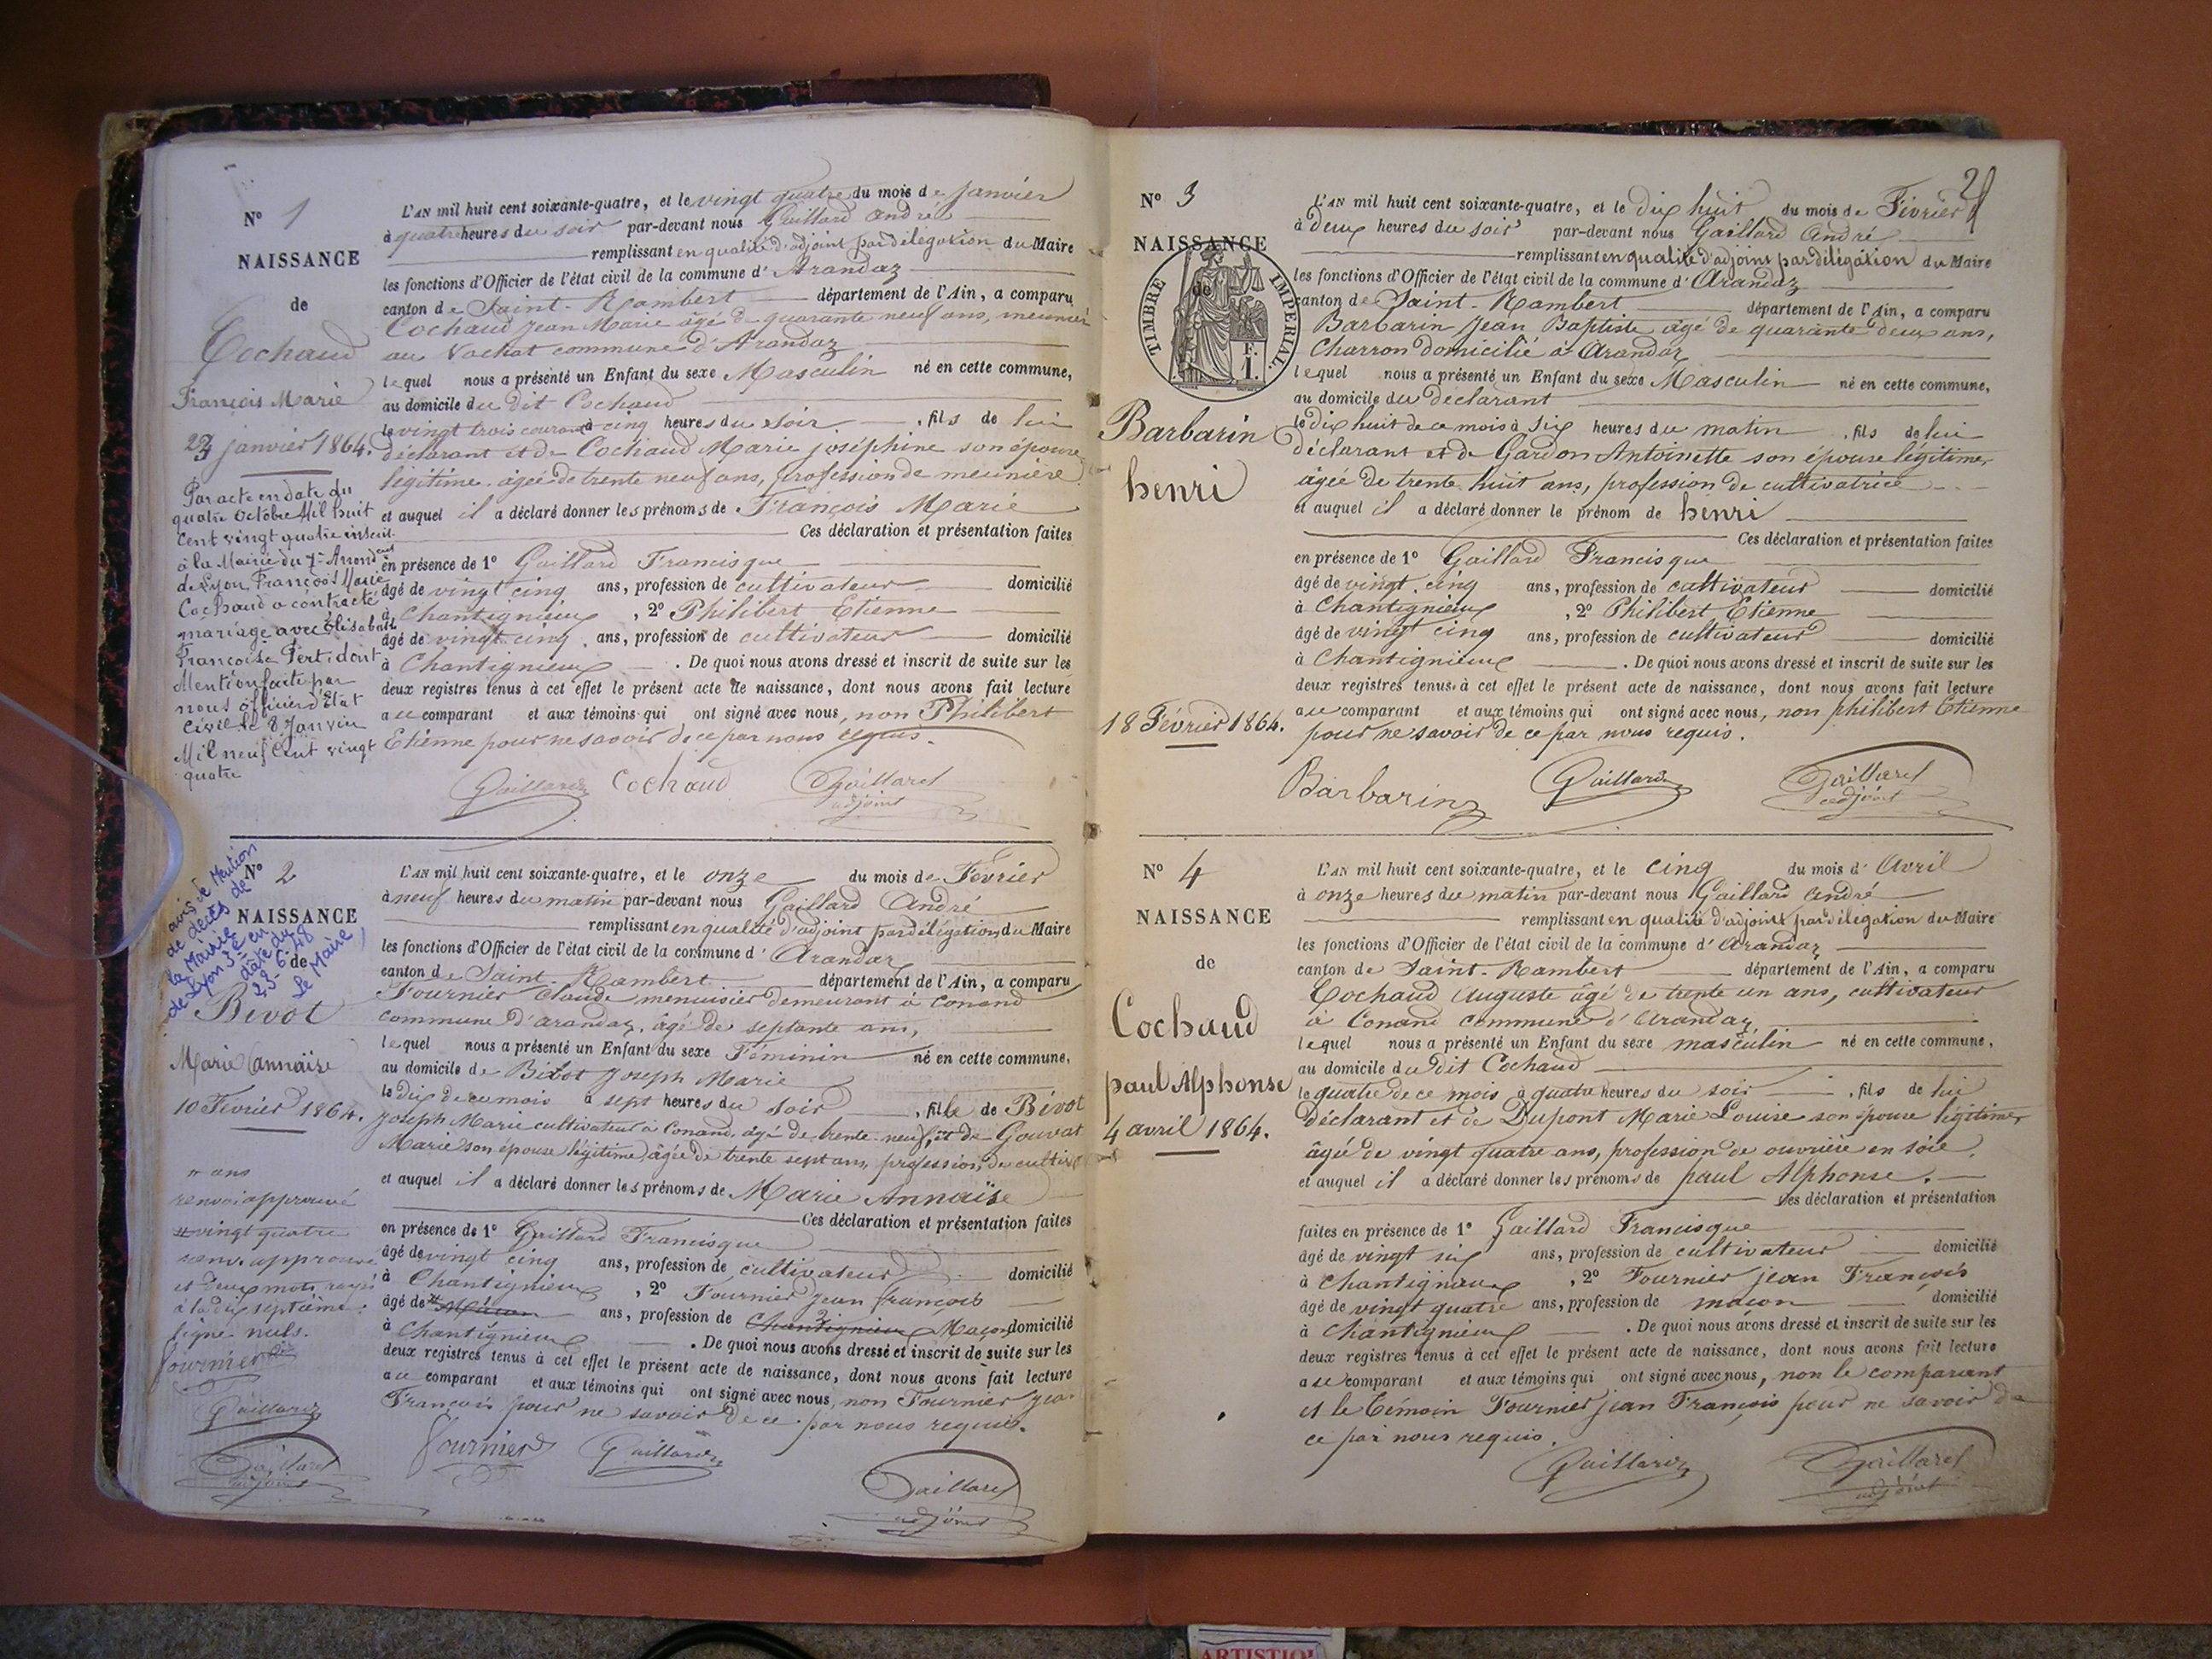 N° 1
NAISSANCE
de
Cochaud
François Marie
23 janvier 1864.
Par acte en date du
quatre Octobre Mil huit
cent vingt quatre inscrit
à la Mairie du 7e Arrondent
de Lyon François Marie
Cochaud a contracté
mariage avec Élisabeth
Françoise Pertidont
Mention faite par
nous officier d'État
Civil le 8 Janvier
Mil neuf Cent vingt
quatre
L'AN mil huit cent soixante-quatre, et le vingt quatre du mois de Janvier
à quatre heures du soir par-devant nous Gaillard André
remplissant en qualité d'adjoint par délégation du Maire
les fonctions d'Officier de l'état civil de la commune d'Arandaz
canton de Saint-Rambert département de l'Ain, a comparu
Cochaud Jean Marie âgé de quarante neuf ans, meunier
au Vachat commune d'Arandaz
lequel nous a présenté un Enfant du sexe Masculin né en cette commune,
au domicile du dit Cochaud
le vingt trois courant à cinq heures du soir, fils de lui
déclarant et de Cochaud Marie joséphine son épouse
légitime âgée de trente neuf ans, profession de meunière
et auquel il a déclaré donner les prénoms de François Marie
Ces déclaration et présentation faites
en présence de 1° Gaillard Francisque
âgé de vingt cinq ans, profession de cultivateur domicilié
à Chantignieux, 2° Philibert Etienne
âgé de vingt cinq ans, profession de cultivateur domicilié
à Chantignieux. De quoi nous avons dressé et inscrit de suite sur les
deux registres tenus à cet effet le présent acte de naissance, dont nous avons fait lecture
au comparant et aux témoins qui ont signé avec nous, non Philibert
Etienne pour ne savoir de ce par nous requis.
Gaillard Cochaud Gaillard
adjoint
N° 2
NAISSANCE
de
avis de Mention
de décès de
la Mairie
de Lyon 3e en
date du
23-6-48
le Maire,
Bivot
Marie Annaïse
10 Février 1864.
ans
renvoi approuvé
vingt quatre
renv. approuvé
et deux mots rayés
à la dix septième
ligne nuls.
Fournier
Gaillard
Gaillard
adjoint
L'AN mil huit cent soixante-quatre, et le onze du mois de Février
à neuf heures du matin par-devant nous Gaillard André
remplissant en qualité d'adjoint par délégation du Maire
les fonctions d'Officier de l'état civil de la commune d'Arandaz
canton de Saint-Rambert département de l'Ain, a comparu
Fournier Claude menuisier demeurant à Conand
commune d'arandaz, âgé de septante ans,
lequel nous a présenté un Enfant du sexe Féminin né en cette commune,
au domicile de Bivot Joseph Marie
le dix de ce mois à sept heures du soir, fille de Bivot
Joseph Marie cultivateur à Conand, âgé de trente neuf, et de Gouvat
Marie son épouse légitime, âgée de trente sept ans, profession de
et auquel il a déclaré donner les prénoms de Marie Annaïse
Ces déclaration et présentation faites
en présence de 1° Gaillard Francisque
âgé de vingt cinq ans, profession de cultivateur domicilié
à Chantignieux, 2° Fournier Jean françois
âgé de Maçon ans, profession de Chantignieux Maçon domicilié
à Chantignieux. De quoi nous avons dressé et inscrit de suite sur les
deux registres tenus à cet effet le présent acte de naissance, dont nous avons fait lecture
au comparant et aux témoins qui ont signé avec nous, non Fournier
François pour ne savoir de ce par nous requis.
Fournier Gaillard
Gaillard
adjoint
2
N° 3
NAISSANCE
de
TIMBRE IMPERIAL
F. 1.
Barbarin
henri
18 Février 1864.
L'AN mil huit cent soixante-quatre, et le dix huit du mois de Février
à deux heures du soir par-devant nous Gaillard André
remplissant en qualité d'adjoint par délégation du Maire
les fonctions d'Officier de l'état civil de la commune d'Arandaz
canton de Saint-Rambert département de l'Ain, a comparu
Barbarin Jean Baptiste âgé de quarante deux ans,
Charron domicilié à Arandaz
lequel nous a présenté un Enfant du sexe Masculin né en cette commune,
au domicile du déclarant
le dix huit de ce mois à six heures du matin, fils de lui
déclarant et de Gardon Antoinette son épouse légitime,
âgée de trente huit ans, profession de cultivatrice
et auquel il a déclaré donner le prénom de henri
Ces déclaration et présentation faites
en présence de 1° Gaillard Francisque
âgé de vingt cinq ans, profession de cultivateur domicilié
à Chantignieux, 2° Philibert Etienne
âgé de vingt cinq ans, profession de cultivateur domicilié
à Chantignieux. De quoi nous avons dressé et inscrit de suite sur les
deux registres tenus à cet effet le présent acte de naissance, dont nous avons fait lecture
au comparant et aux témoins qui ont signé avec nous, non philibert Etienne
pour ne savoir de ce par nous requis.
Barbarin Gaillard Gaillard
adjoint
N° 4
NAISSANCE
de
Cochaud
paul Alphonse
4 avril 1864.
L'AN mil huit cent soixante-quatre, et le cinq du mois d'Avril
à onze heures du matin par-devant nous Gaillard André
remplissant en qualité d'adjoint par délégation du Maire
les fonctions d'Officier de l'état civil de la commune d'Arandaz
canton de Saint-Rambert département de l'Ain, a comparu
Cochaud Auguste âgé de trente un ans, cultivateur
à Conand commune d'Arandaz
lequel nous a présenté un Enfant du sexe masculin né en cette commune,
au domicile du dit Cochaud
le quatre de ce mois à quatre heures du soir, fils de lui
déclarant et de Dupont Marie Louise son épouse légitime,
âgée de vingt quatre ans, profession de ouvrière en soie,
et auquel il a déclaré donner les prénoms de paul Alphonse.
Ces déclaration et présentation
faites en présence de 1° Gaillard Francisque
âgé de vingt six ans, profession de cultivateur domicilié
à Chantignieux, 2° Fournier jean François
âgé de vingt quatre ans, profession de maçon domicilié
à Chantignieux. De quoi nous avons dressé et inscrit de suite sur les
deux registres tenus à cet effet le présent acte de naissance, dont nous avons fait lecture
au comparant et aux témoins qui ont signé avec nous, non le comparant
et le témoin Fournier jean François pour ne savoir de
ce par nous requis.
Gaillard Gaillard
adjoint